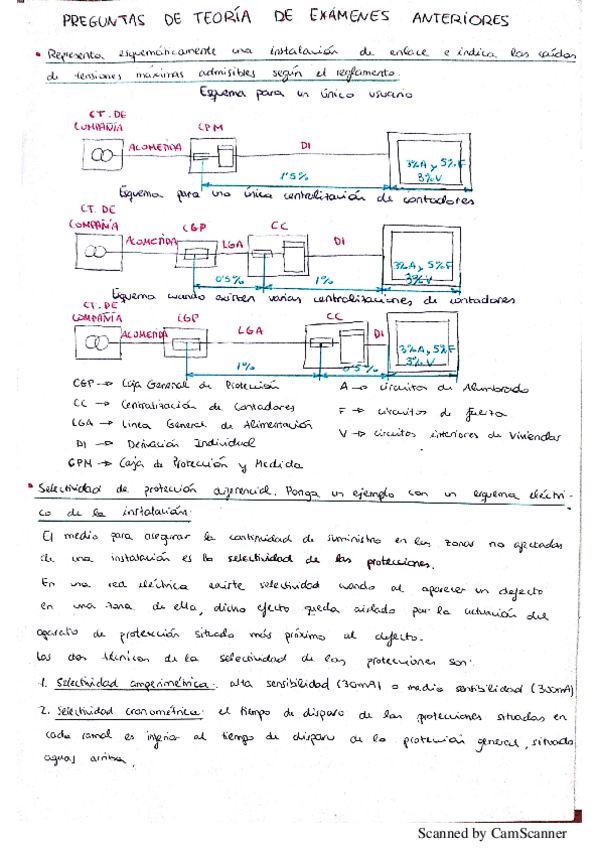 PREGUNTAS DE TEORÍA DE EXÁMENES ANTERIORES
• Representa esquemáticamente una instalación de enlace e indica las caídas
de tensiones máximas admisibles según el reglamento.
Esquema para un único usuario
CT. DE
COMPAÑÍA
ACOMETIDA
CPM
DI
3%A y 5%F
3%V
1'5%
Esquema para una única centralización de contadores
CT. DE
COMPAÑÍA
ACOMETIDA
CGP
LGA
CC
DI
3%A, y 5%F
3%V
0'5%
1%
Esquema cuando existen varias centralizaciones de contadores
CT. DE
COMPAÑÍA
ACOMETIDA
CGP
LGA
CC
DI
3%A, 5%F
3%V
1%
0'5%
CGP → Caja General de Protección
A → circuitos de Alumbrado
CC → Centralización de Contadores
F → circuitos de fuerza
LGA → Linea General de Alimentación
V → circuitos interiores de Viviendas
DI → Derivación Individual
CPM → Caja de Protección y Medida
• Selectividad de protección diferencial. Ponga un ejemplo con un esquema eléctri-
co de la instalación:
El medio para asegurar la continuidad de suministro en las zonas no afectadas
de una instalación es la selectividad de las protecciones.
En una red eléctrica existe selectividad cuando al aparecer un defecto
en una zona de ella, dicho efecto queda aislado por la actuación del
aparato de protección situado más próximo al defecto.
Las dos técnicas de la selectividad de las protecciones son:
1. Selectividad amperimétrica: alta sensibilidad (30mA) o media sensibilidad (300mA)
2. Selectividad cronométrica: el tiempo de disparo de las protecciones situadas en
cada ramal es inferior al tiempo de disparo de la protección general, situada
aguas arriba.
Scanned by CamScanner